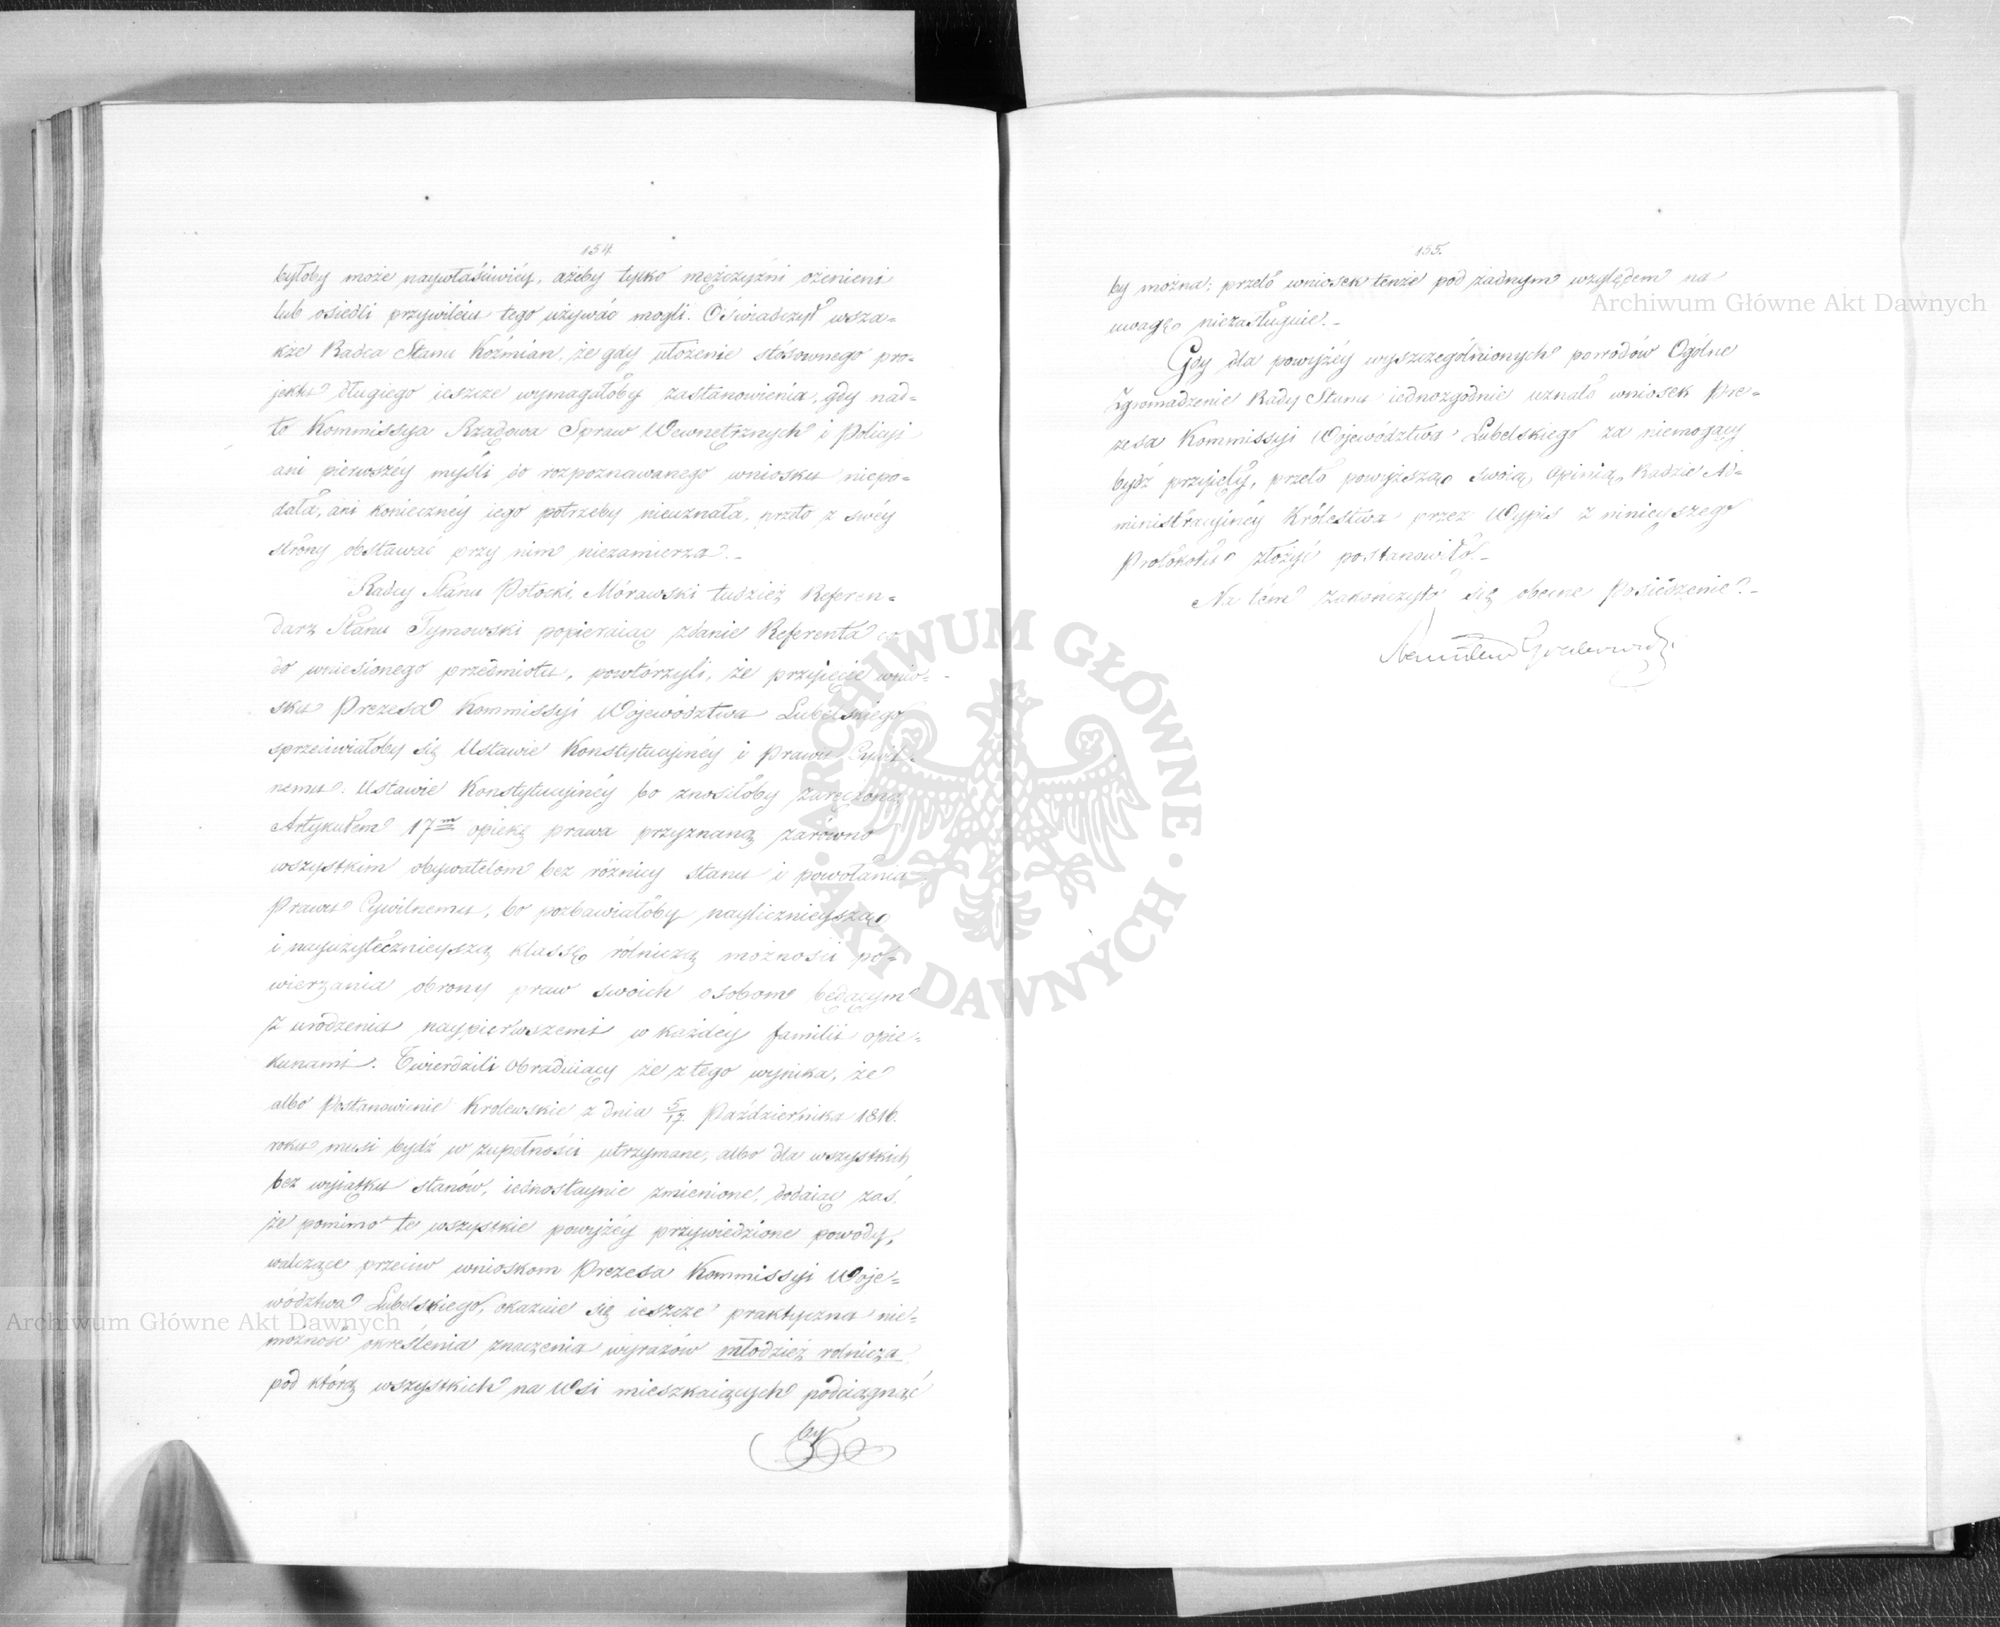 154
byłoby może naywłaściwiéy, ażeby tylko mężczyźni ożenieni
lub osiedli przywileiu tego używać mogli. Oświadczył wsza=
kże Radca Stanu Koźmian, że gdy ułożenie stósownego pro=
jektu długiego ieszcze wymagałoby zastanowienia, gdy nad=
to Kommissya Rządowa Spraw Wewnętrznych i Policyi
ani pierwszéy myśli do rozpoznawanego wniosku niepo=
dała, ani konieczney iego potrzeby nieuznała, przeto z swéy
strony obstawać przy nim niezamierza._
Radcy Stanu Potocki, Morawski tudzież Referen=
darz Stanu Tymowski popieraiąc zdanie Referenta co
do wniesionego przedmiotu, powtórzyli, że przyięcie wnio=
sku Prezesa Kommissyi Województwa Lubelskiego
sprzeciwiałoby się Ustawie Konstytucyinéy i Prawu Cywil=
nemu: Ustawie Konstytucyinéy bo znosiłoby zaręczoną
Artykułem 17m opiekę prawa przyznaną zarówno
wszystkim obywatelom bez różnicy stanu i powołania
Prawu Cywilnemu, bo pozbawiałoby naylicznieyszą
i nayużytecznieyszą klassę rólniczą możności po=
wierzania obrony praw swoich osobom będącym
z urodzenia naypierwszemi w każdéy familii opie=
kunami. Twierdzili Obraduiący że z tego wynika, że
albo Postanowienie Królewskie z dnia 5/17 Października 1816.
roku musi bydź w zupełności utrzymane, albo dla wszystkich
bez wyiątku stanów, iednostaynie zmienione, dodaiąc zaś
że pomimo te wszystkie powyżéy przywiedzione powody,
walczące przeciw wnioskom Prezesa Kommissyi Woje=
wództwa Lubelskiego, okazuie się ieszcze praktyczna nie=
możność określenia znaczenia wyrazów młodzież rolnicza
pod którą wszystkich na Wsi mieszkaiących podciągnąć
by
155.
by można; przeto wniosek tenże pod żadnym względem na
uwagę niezasługuie._
Gdy dla powyżéy wyszczególnionych powodów Ogólne
Zgromadzenie Rady Stanu iednozgodnie uznało wniosek Pre=
zesa Kommissyi Województwa Lubelskiego za niemogący
bydź przyięty, przeto powyższą swoią opinią, Radzie Ad=
ministracyinéy Królestwa przez Wypis z ninieyszego
Protokołu złożyć postanowiło._
Na tem zakończyło się obecne Posiedzenie._
Archiwum Główne Akt Dawnych
Archiwum Główne Akt Dawnych
ARCHIWUM GŁÓWNE
AKT DAWNYCH